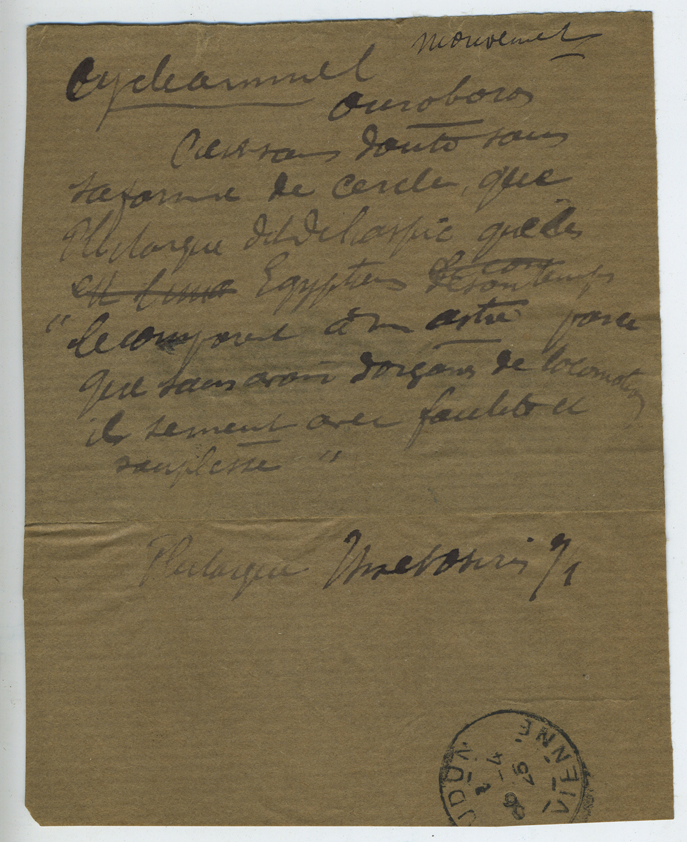 mouvement
Cycle annuel
ouroboros
C'est sans doute sous
sa forme de cercle, que
Plutarque dit de l'aspic que les
Egyptiens de son temps
"le comparent à un astre parce
que sans avoir d'organes de locomotion
ils se meut avec facilité et
souplesse"
Plutarque Isis et Osiris
UDUN
VIENNE